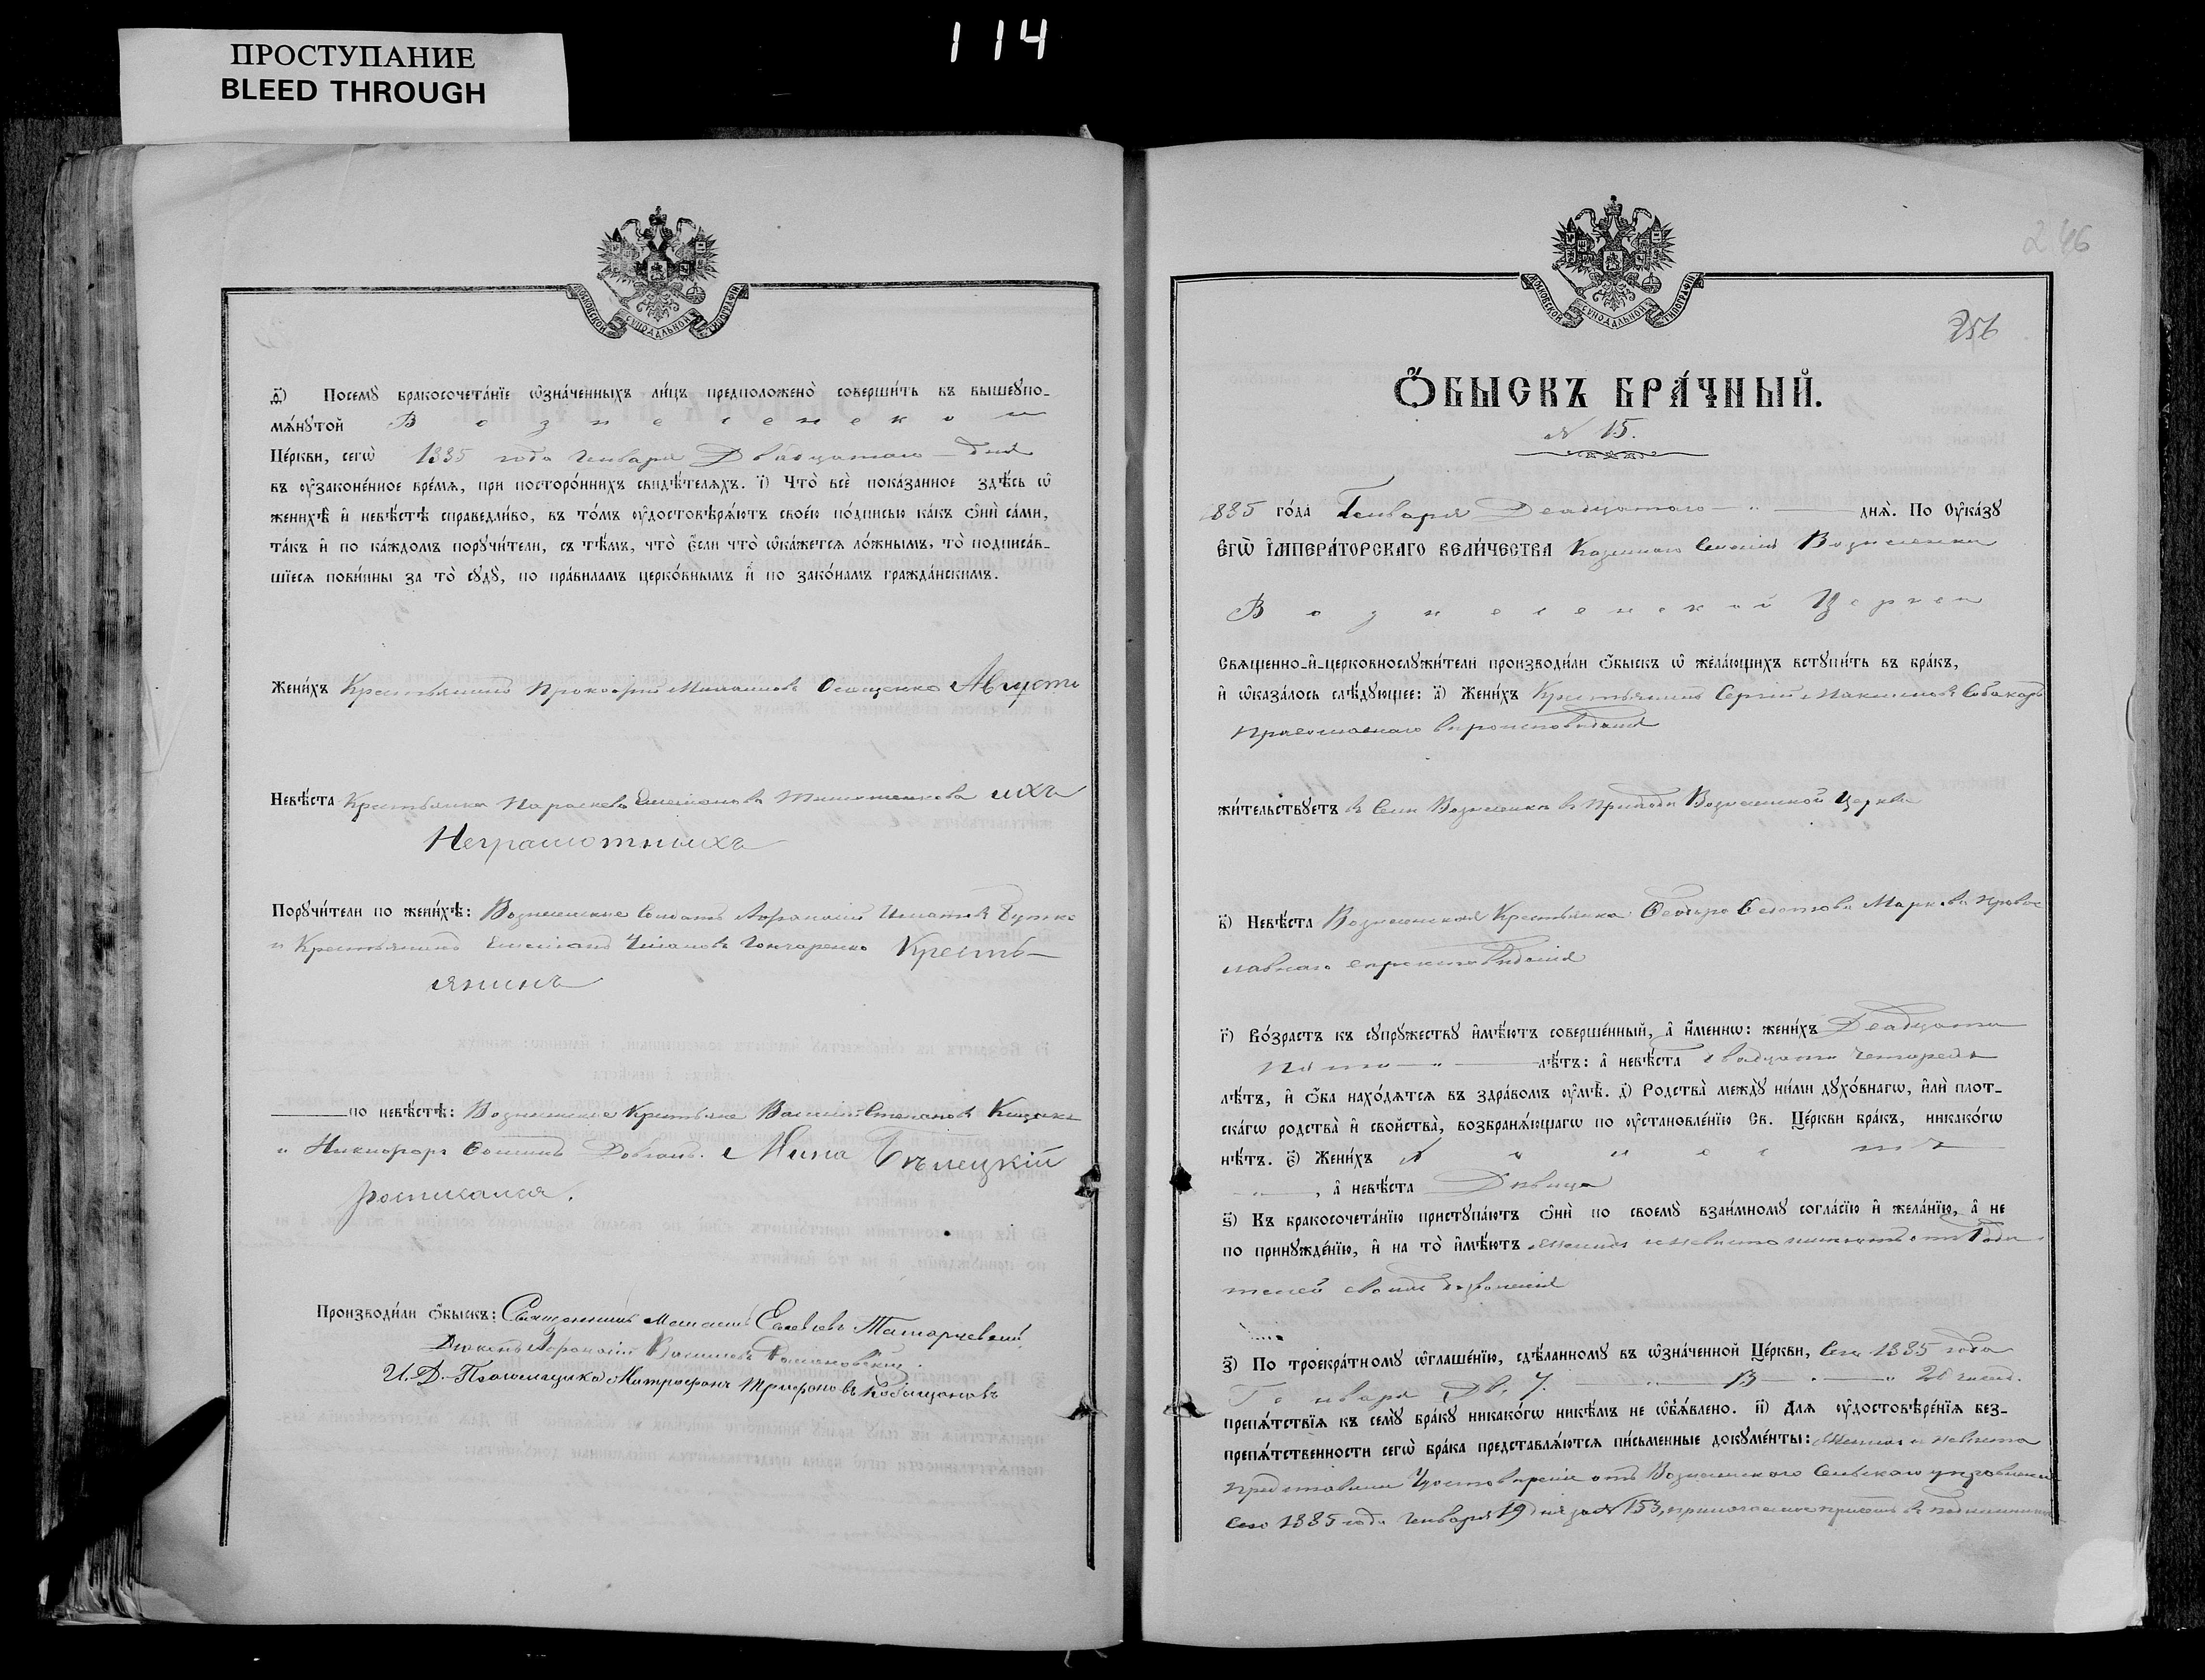 ПРОСТУПАНИЕ
BLEED THROUGH
114
МОСКОВСКОЙ СѴНОДАЛЬНОЙ ТИПОГРАФІИ
ѳ҃) Посемꙋ̀ бракосочета́нїе ѡ҆зна́ченныхъ ли́цъ предположено̀ соверши́ть въ вышеꙋпо-
мѧ́нꙋтой Вознесенской
Це́ркви, сегѡ̀ 1885 года Генваря Двадцатаго дня
въ ꙋ҆законе́нное вре́мѧ, при посторо́ннихъ свидѣ́телѧхъ. і҃) Что̀ всѐ пока́занное здѣ́сь ѡ҆
женихѣ̀ и҆ невѣ́стѣ справедли́во, въ то́мъ ꙋ҆достовѣрѧ́ютъ свое́ю по́дписью ка́къ ѻ҆нѝ са́ми,
та́къ и҆ по ка́ждомъ порꙋчи́тели, съ тѣ́мъ, что̀ є҆́сли что̀ ѡ҆ка́жетсѧ ло́жнымъ, то̀ подписа́в-
шїесѧ пови́нны за то̀ сꙋдꙋ̀, по пра́виламъ церко́внымъ и҆ по зако́намъ гражда́нскимъ.
Жени́хъ Крестьянинъ Прокофій Осащенко
Невѣ́ста Крестьянка Параскева
Неграмотныхъ
Порꙋчи́тели по женихѣ̀: Вознесенские Солдатъ Афанасій Игнатовъ Бутко
и Крестьянинъ Емеліанъ Ивановъ Гончаренко Кресть-
янинъ
по невѣ́стѣ: Вознесенские Крестьяне Василій Степановъ
и Никифоръ Фоминъ Довганъ. Мина Бѣлецкій
росписался.
Производи́ли ѻ҆́быскъ: Священникъ Татарчевскій
Діаконъ Афанасій Васильевъ
И. Д. Псаломщика Митрофанъ Трифоновъ
МОСКОВСКОЙ СѴНОДАЛЬНОЙ ТИПОГРАФІИ
246
256
Ѻ҆́БЫСКЪ БРА́ЧНЫЙ.
№ 15.
1885 го́да Генваря Двадцатаго днѧ̀. По Оу҆ка́зꙋ
Є҆гѡ̀ И҆мпера́торскаго Вели́чества Казеннаго Селенія Вознесенки
Вознесенской Церкви
Свѧщенно-и҆-церковнослꙋжи́тели производи́ли ѻ҆́быскъ ѡ҆ жела́ющихъ встꙋпи́ть въ бра́къ,
и҆ ѡ҆каза́лось слѣ́дꙋющее: а҃) Жени́хъ Крестьянинъ Сергій Максимовъ Собакарь
Православнаго вѣроисповѣданія
жи́тельствꙋетъ въ Селѣ Вознесенкѣ въ Приходѣ Вознесенской Церкви
в҃) Невѣ́ста Вознесенская Крестьянка Ѳеодора Маркова Правос
лавнаго вѣроисповѣданія
г҃) Во́зрастъ къ сꙋпрꙋ́жествꙋ и҆мѣ́ютъ соверше́нный, а҆ и҆́меннѡ: жени́хъ Двадцати
пяти лѣ́тъ: а҆ невѣ́ста двадцати четырехъ
лѣ́тъ, и҆ ѻ҆́ба нахо́дѧтсѧ въ здра́вомъ ꙋ҆мѣ̀. д҃) Родства̀ междꙋ̀ ни́ми дꙋхо́внагѡ, и҆лѝ плот-
ска́гѡ родства̀ и҆ свойства̀, возбранѧ́ющагѡ по ꙋ҆становле́нїю Св. Це́ркви бра́къ, никако́гѡ
нѣ́тъ. є҃) Жени́хъ Холостъ
, а҆ невѣ́ста Дѣвица
ѕ҃) Къ бракосочета́нїю пристꙋпа́ютъ ѻ҆нѝ по своемꙋ̀ взаи́мномꙋ согла́сїю и҆ жела́нїю, а҆ не
по принꙋжде́нїю, и҆ на то̀ и҆мѣ́ютъ женихъ и невѣста имѣютъ отъ Роди
телей своихъ дозволенія
з҃) По троекра́тномꙋ ѡ҆глаше́нїю, сдѣ́ланномꙋ въ ѡ҆зна́ченной Це́ркви, Сего 1885 года
Генваря 13 20 числ.
препѧ́тствїѧ къ семꙋ̀ бра́кꙋ никако́гѡ никѣ́мъ не ѡ҆б̾ѧ́влено. и҃) Длѧ ꙋ҆достовѣре́нїѧ без-
препѧ́тственности сегѡ̀ бра́ка представлѧ́ютсѧ пи́сьменные докꙋме́нты: женихъ и невѣста
представили Удостовѣреніе отъ Вознесенскаго Сельскаго управленія
Сего 1885 года Генваря 19 дня за № 153,